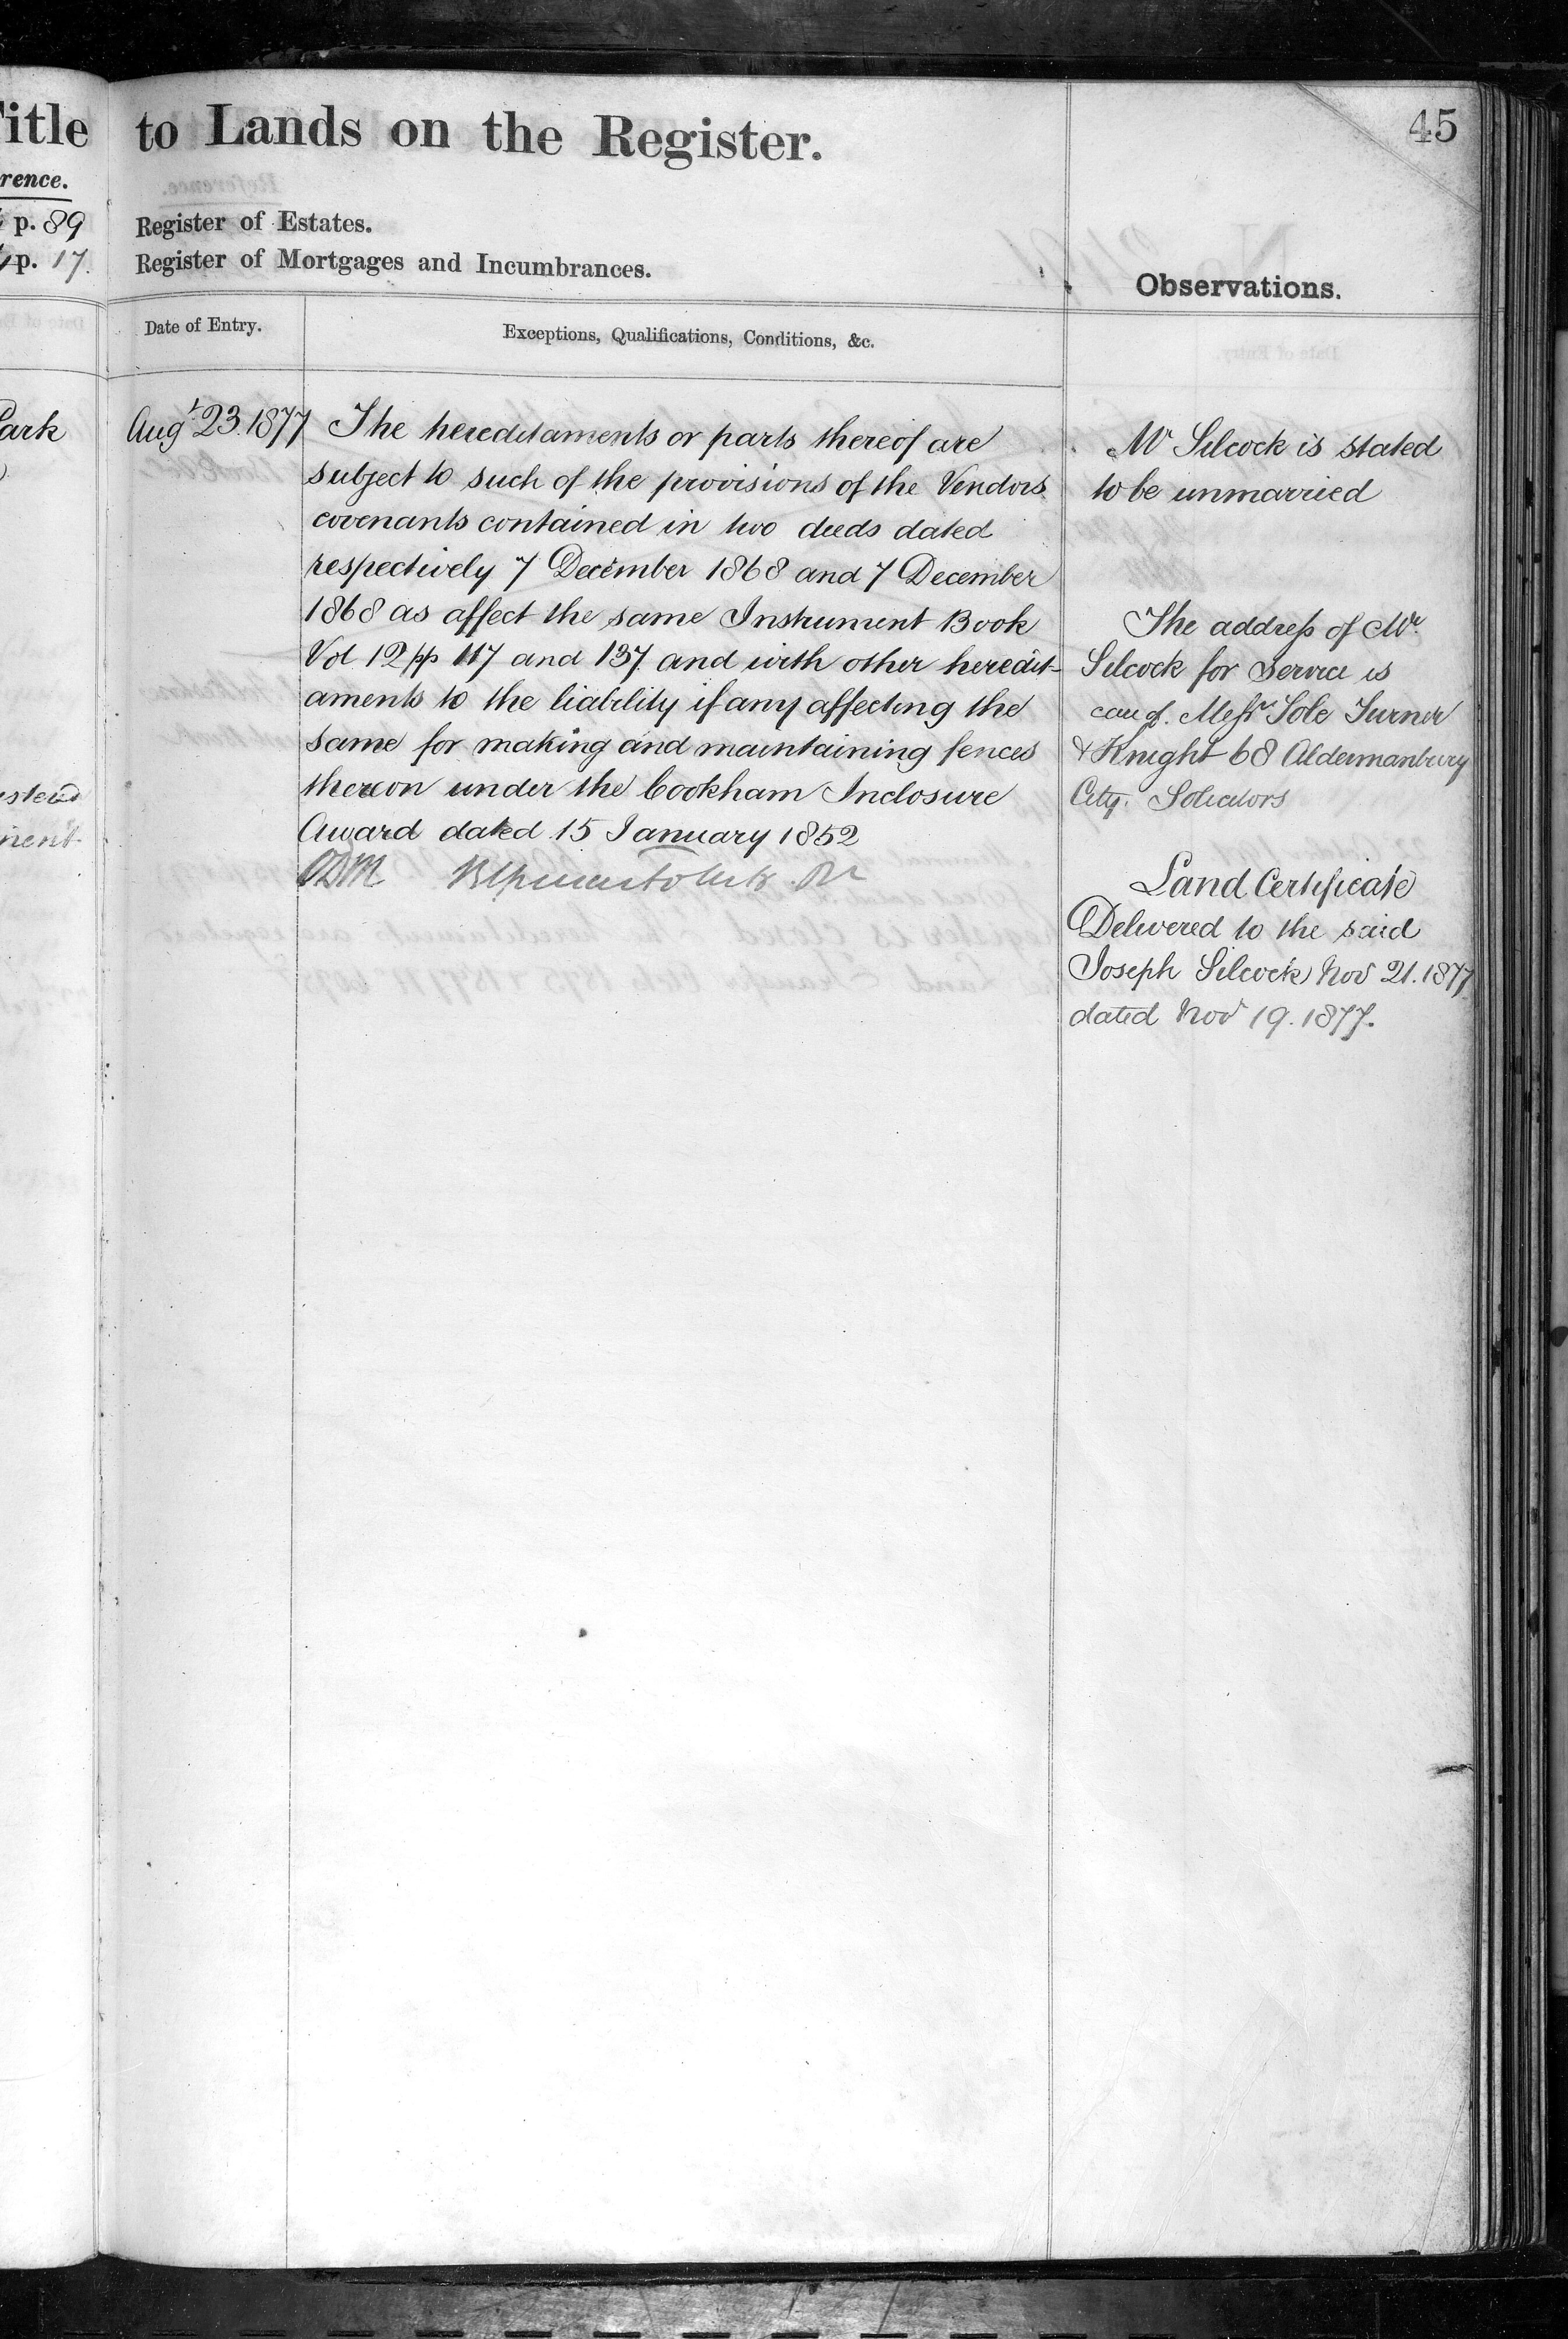 to Lands on the Register.
45
Title
rence.
p. 89
p. 17.
Register of Estates.
Register of Mortgages and Incumbrances.
Observations.
Date of Entry.
Exceptions, Qualifications, Conditions, &c.
Park
Augt 23. 1877
The hereditaments or parts thereof are
subject to such of the provisions of the Vendors
covenants contained in two deeds dated
respectively 7 December 1868 and 7 December
1868 as affect the same Instrument Book
Vol 12 pp 117 and 137 and with other heredit-
aments to the liability if any affecting the
same for making and maintaining fences
thereon under the Cookham Inclosure
Award dated 15 January 1852
ment
Mr Silcock is stated
to be unmarried
The address of Mr.
Silcock for service is
care of. Messrs Sole Turner
& Knight 68 Aldermanbury
City. Solicitors
Land Certificate
Delivered to the said
Joseph Silcock Nov 21. 1877
dated Nov 19. 1877.